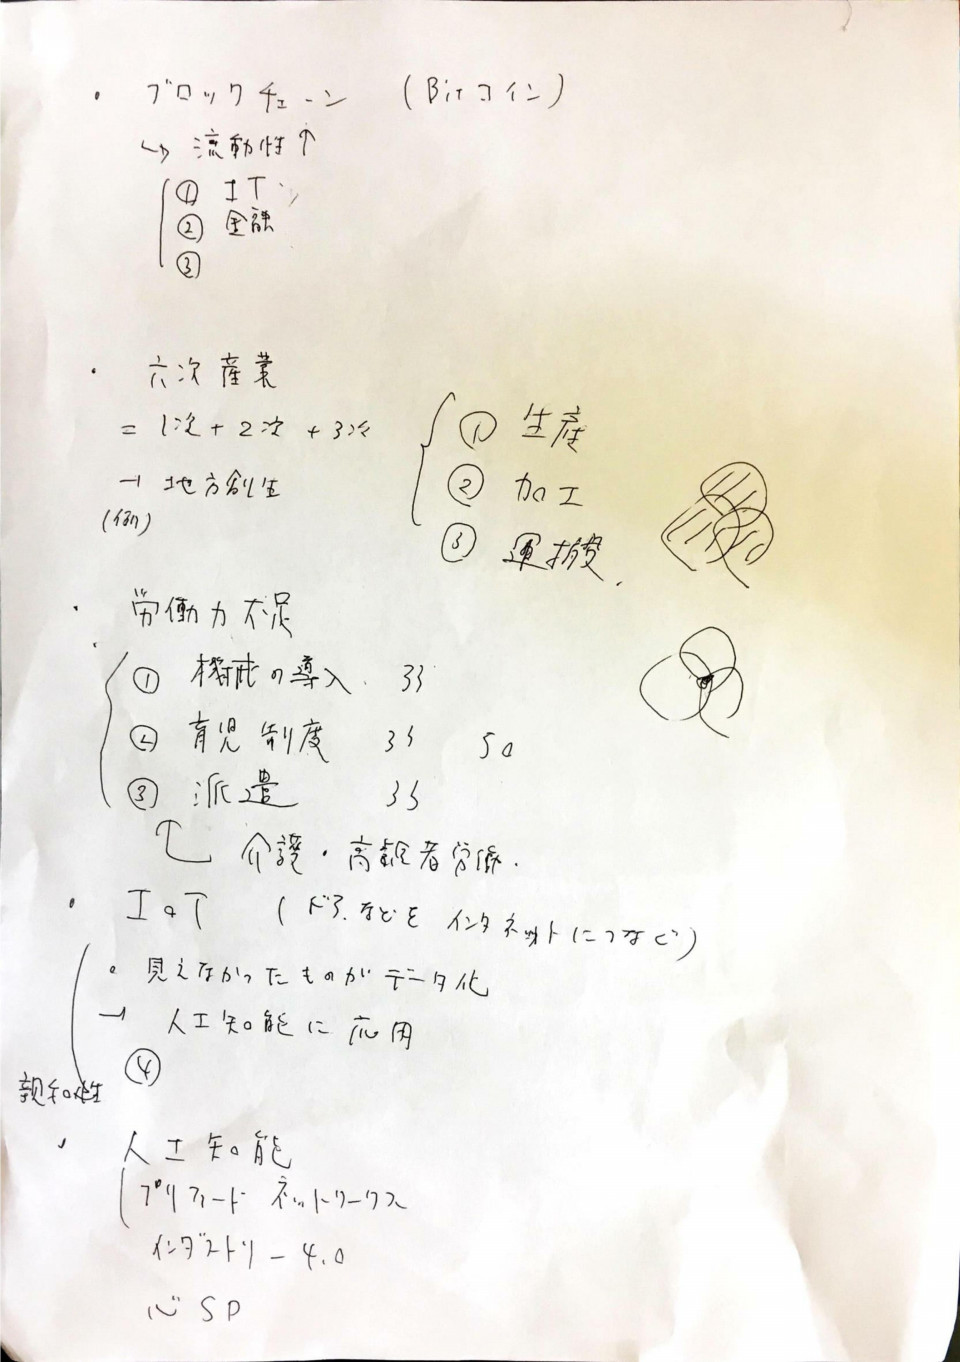 ・ ブロックチェーン (Bitコイン)
↳ 流動性↑
① IT
② 金融
③
・ 六次産業
= 1次+2次+3次
→ 地方創生
(例)
① 生産
② 加工
③ 運搬.
・ 労働力不足
① 機械の導入. 33
② 育児制度 33 50
③ 派遣 33
介護・高齢者労働.
・ IoT (ドア.などをインタネットにつなぐ)
・ 見えなかったものがデータ化
→ 人工知能に応用
④
親和性
・ 人工知能
プリファード ネットワークス
インダストリー4.0
心 SP